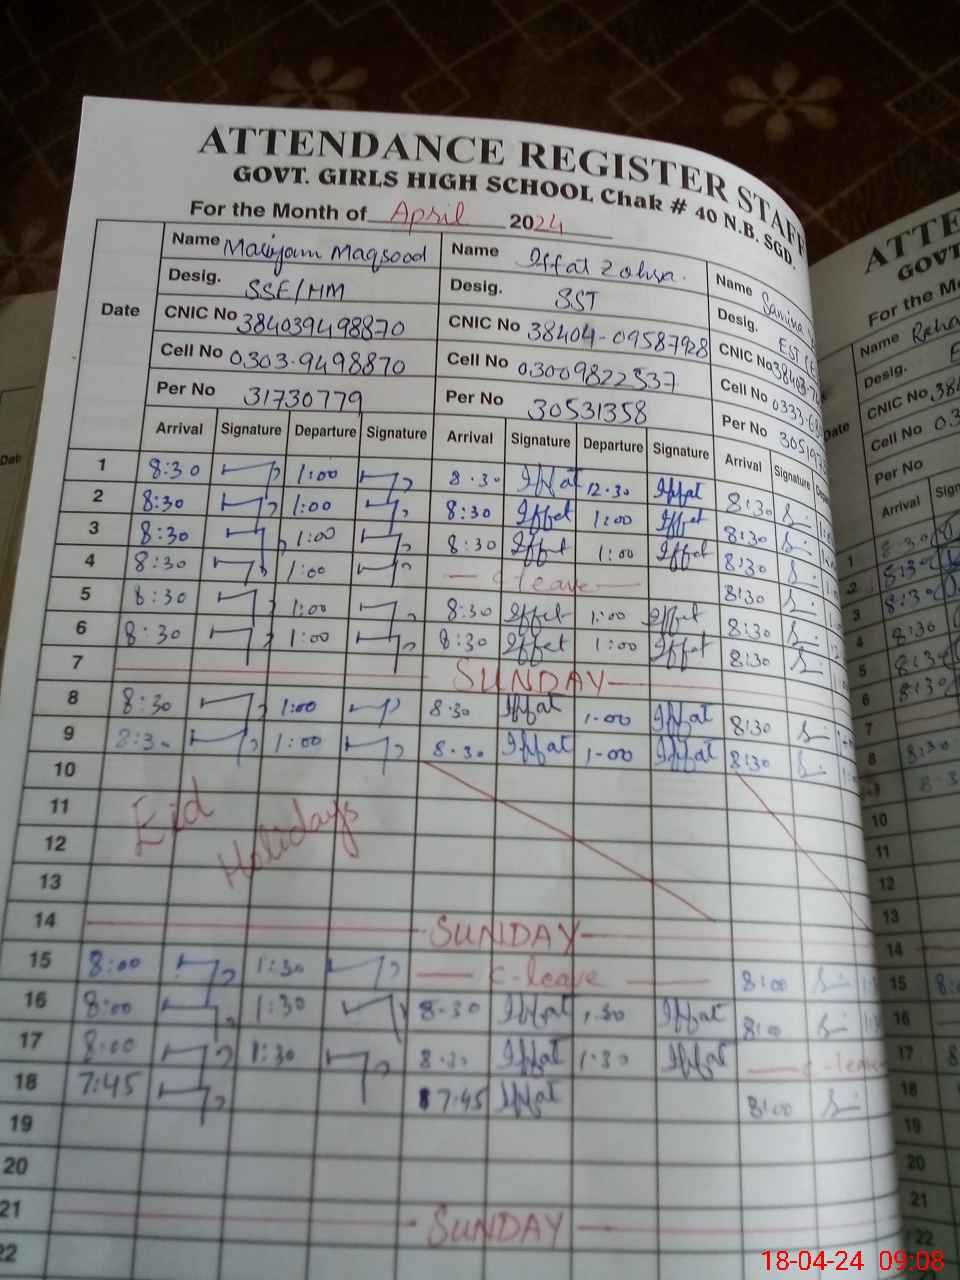 ATTENDANCE REGISTER STAFF
GOVT. GIRLS HIGH SCHOOL Chak # 40 N.B. SGD.
For the Month of April 2024
Date
Name Mariyam Maqsood Name Iffat Zahra. Name Samina
Desig. SSE/HM Desig. SST Desig. EST
CNIC No 384039498870 CNIC No 38404-09587928 CNIC No 38403-
Cell No 0303-9498870 Cell No 03009822537 Cell No 0333-
Per No 31730779 Per No 30531358 Per No 30519
Arrival Signature Departure Signature Arrival Signature Departure Signature Arrival Signature
1 8:30 1:00 8.30 Iffat 12.30 Iffat 8:30
2 8:30 1:00 8:30 Iffat 1:00 Iffat 8:30
3 8:30 1:00 8:30 Iffat 1:00 Iffat 8:30
4 8:30 1:00 C-leave 8:30
5 8:30 1:00 8:30 Iffat 1:00 Iffat 8:30
6 8:30 1:00 8:30 Iffat 1:00 Iffat 8:30
7 SUNDAY
8 8:30 1:00 8.30 Iffat 1-00 Iffat 8:30
9 8:30 1:00 8.30 Iffat 1-00 Iffat 8:30
10
11 Eid
12 Holidays
13
14 SUNDAY
15 8:00 1:30 C-leave 8:00
16 8:00 1:30 8.30 Iffat 1.30 Iffat 8:00
17 8:00 1:30 8.30 Iffat 1.30 Iffat C-leave
18 7:45 7:45 Iffat 8:00
19
20
21 SUNDAY
22
ATTE
GOVT
For the Mo
Date
Name
Desig.
CNIC No
Cell No 03
Per No
Arrival
1 8:30
2 8:30
3 8:30
4 8:30
5 8:30
6 8:30
7
8 8:30
10
11
12
13
14
15
16
17
18
19
20
21
22
18-04-24 09:08